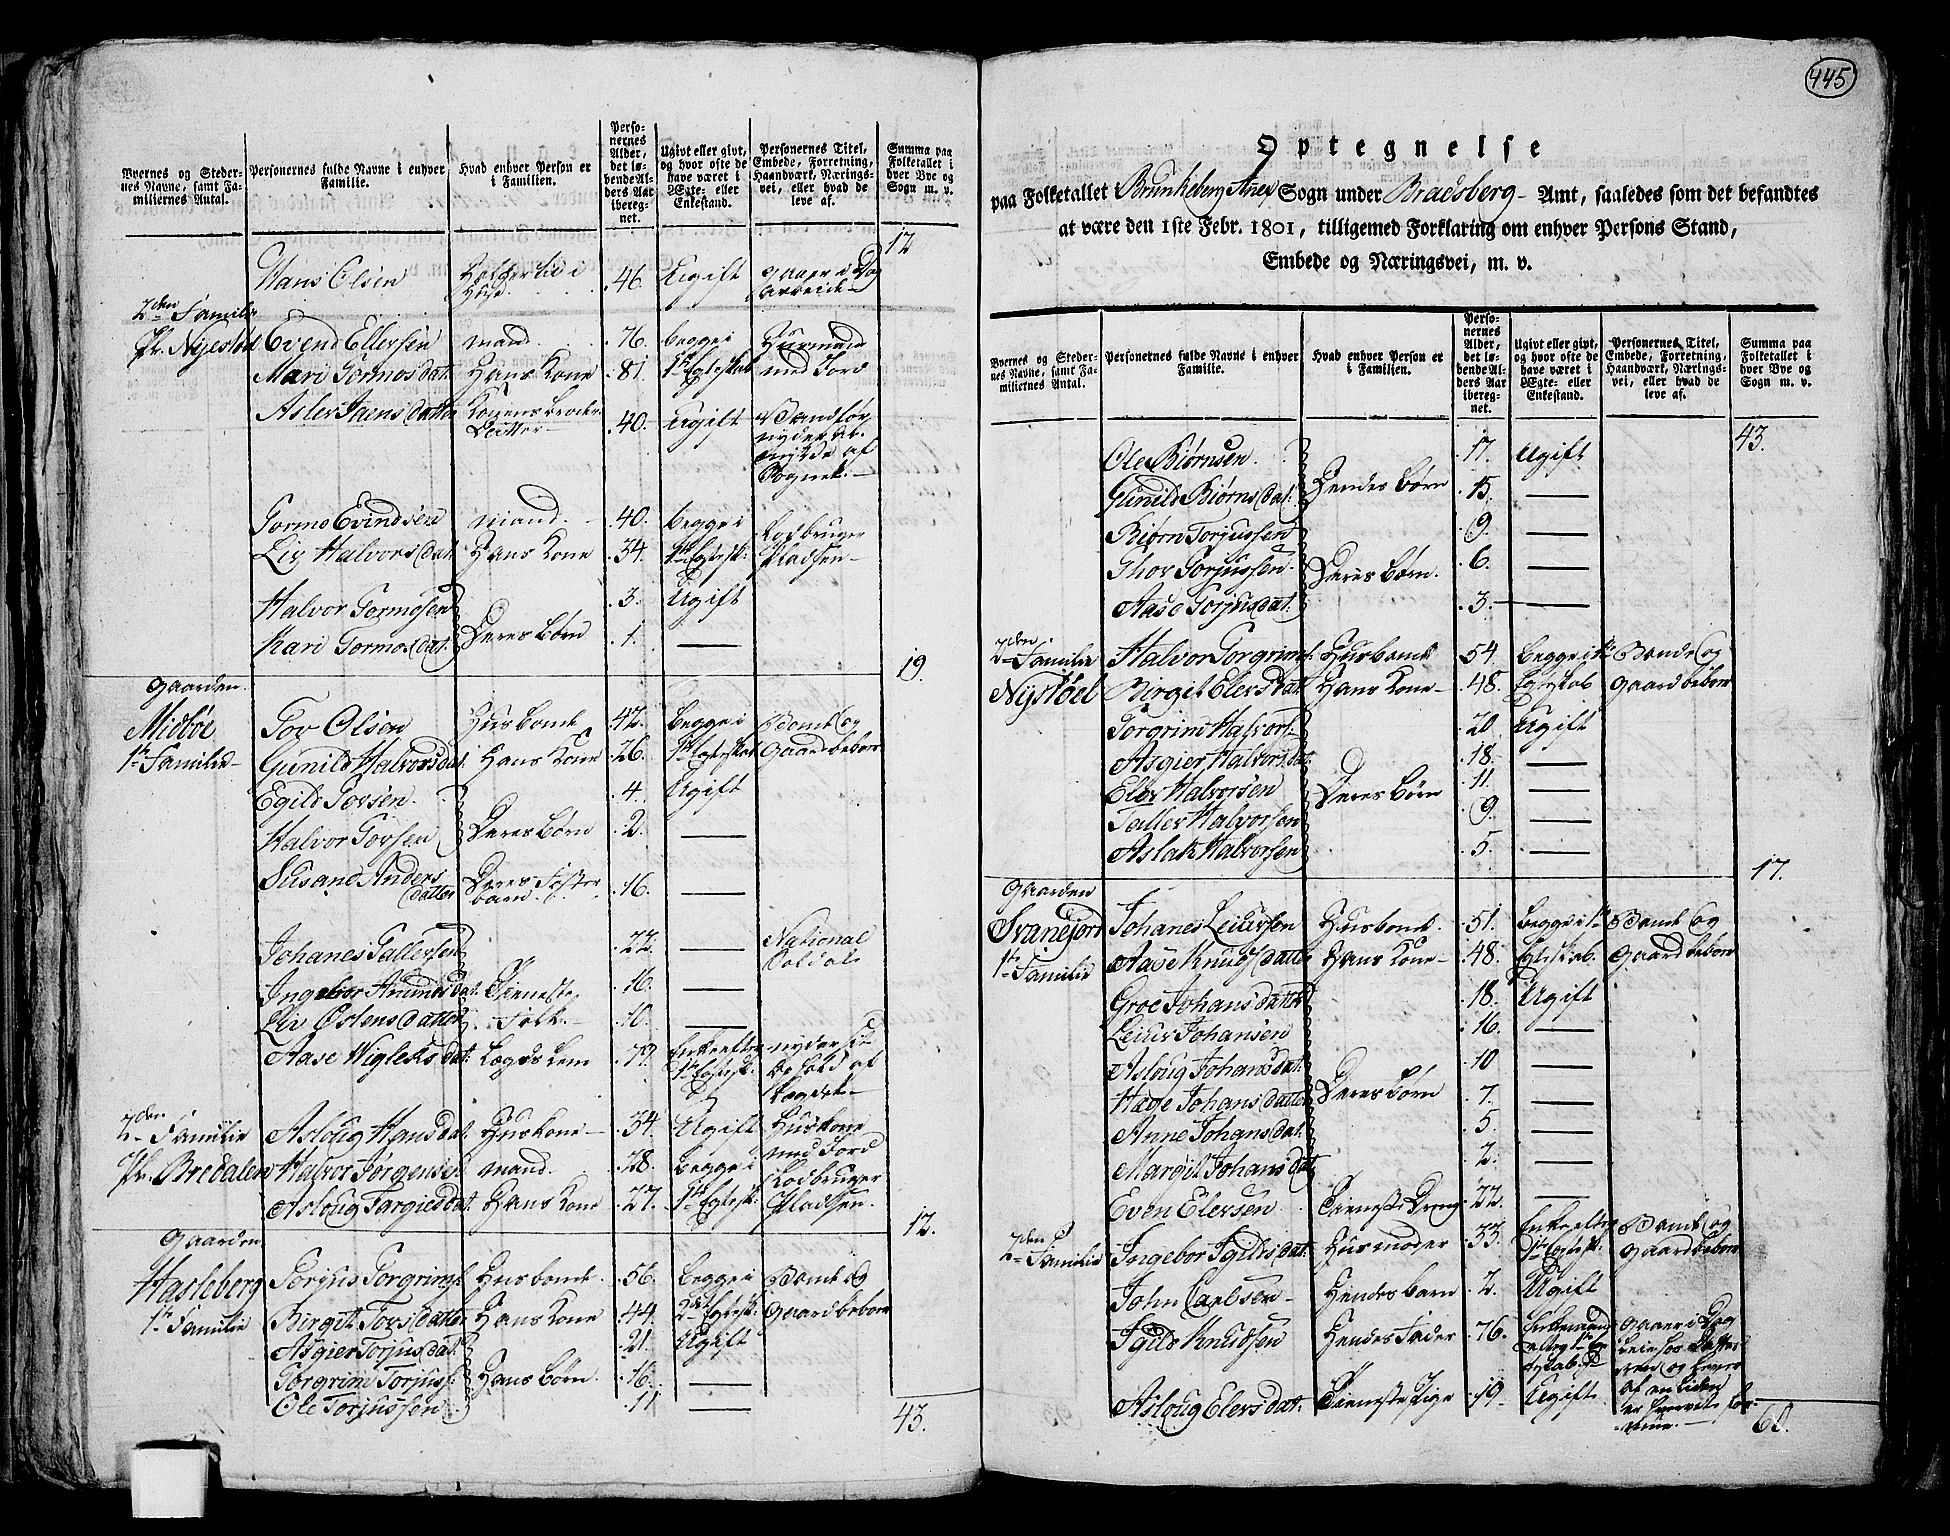 Byernes og Steder- nes Navne, samt Fa- miliernes Antal. | Personernes fulde Navne i enhver Familie. | Hvad enhver Person er i Familien. | Perso- nernes Alder, det lø- bende Al- ders Aar iberegnet. | Ugivt eller givt, og hvor ofte de have været i Ægte- eller Enkestand. | Personernes Titel, Embede, Forretning, Haandværk, Nærings- vei, eller hvad de leve af. | Summa paa Folketallet i hver Bye og Sogn m. v.
12
Hans Olsen | 46. | Ugift | gaaer i Dag arbeide
2den Familie
Pl. Nyestøel | Evend Ellefsen | mand. | 76. | begge i | Huusmand
Mari Tormosdat. | Hans Kone | 81. | 1te Egteskab | med Jord
Datter | 40. | Ugift
Tormo Evindsen | mand. | 40. | begge i | Jordbruger
Liv Halvorsdat. | Hans Kone | 34. | 1te Egtesk: | Pladsen
Halvor Tormosen | Deres Børn | 3. | Ugift
Kari Tormosdat. | 1. | —
19.
Gaarden
Midbøe | Tov Olsen | Husbonde | 42. | begge i | Bonde og
1te Familie | Gunild Halvorsdat. | Hans Kone | 26. | 1te Egteskab | Gaardbeboer
Egild Tovsen. | 4. | Ugift
Halvor Tovsen | Deres Børn | 2. | —
Susand Anders datter | Deres Foster barn. | 16. | —
Johanes Tallefsen | 22. | — | National Soldat
Ingebor Amundsdat. | Tieneste | 16. | —
Liv Østensdatter | Folk. | 10. | —
Aase Wigleksdat. | Lægds Lem | 79. | Enke efter 1te Egtesk: | nyder sit af Lægdet
2den Familie | Asloug Hansdat. | Huskone | 34. | Ugift | Huskone med Jord
Pl. Bredalen | Halvor Jørgensen | mand. | 28. | begge i | Jordbruger
Asloug Targiesdat. | Hans Kone | 27. | 1te Egtesk: | Pladsen.
12.
Gaarden
Hasleberg | Torjus Torgrims. | Husbonde. | 56. | begge i | Bonde og
1te Familie | Birgit Tovsdatter | Hans Kone | 44. | 2det Egtesk: | Gaardbeboer
Asgier Torjusdat. | 21. | Ugift
Torgrim Torjus. | Hans Børn. | 16. | —
Ole Torjussen | 11 | —
43.
445
Optegnelse
paa Folketallet i Brunkeberg Anex Sogn under Bradsberg Amt, saaledes som det befandtes
at være den 1ste Febr. 1801, tilligemed Forklaring om enhver Persons Stand,
Embede og Næringsvei, m. v.
Byernes og Steder- nes Navne, samt Fa- miliernes Antal. | Personernes fulde Navne i enhver Familie. | Hvad enhver Person er i Familien. | Perso- nernes Alder, det lø- bende Al- ders Aar iberegnet. | Ugivt eller givt, og hvor ofte de have været i Ægte- eller Enkestand. | Personernes Titel, Embede, Forretning, Haandværk, Nærings- vei, eller hvad de leve af. | Summa paa Folketallet i hver Bye og Sogn m. v.
43.
Ole Biørnsen. | 17. | Ugift
Gunild Biørnsdat. | Hendes Børn | 15. | —
Biørn Torjussen | 9. | —
Thor Torjussen. | Deres Børn. | 6. | —
Aase Torjusdat. | 3. | —
2den Familie | Halvor Torgrims. | Husbonde | 54 | begge i 1te | Bonde og
Nystøel | Birgit Elefsdat. | Hans Kone | 48. | Egteskab | Gaardbeboer
Torgrim Halvors. | 20 | Ugift
Asgier Halvorsdat. | 18. | —
Elev Halvorsen | Deres Børn | 11. | —
Tallev Halvorsen | 9. | —
Aslak Halvorsen | 5. | —
17.
Gaarden
Svanejord | Johanes Leidersen | Husbonde. | 51. | begge i 1te | Bonde og
1te Familie | Aase Knudsdatter | Hans Kone | 48. | Egteskab. | Gaardbeboer
Groe Johansdatter | 18. | Ugift
Johansen | 16. | —
Asloug Johansdat. | 10 | —
Hæge Johansdatter | Deres Børn | 7. | —
Anne Johansdat. | 5. | —
Margit Johansdat. | 2. | —
Even Elefsen | Tieneste Dreng | 22. | —
2den Familie | Ingebor Igildsdat. | Husmoder | 33. | Enke efter 1te Egtesk: | Bonde og Gaardbeboer
John Carlsen | Hendes barn | 2. | Ugift
Igild Knudsen | Hendes Fader | 76. | Enkemand
Asloug Elefsdat. | Tieneste Pige | 19 | Ugift
60.